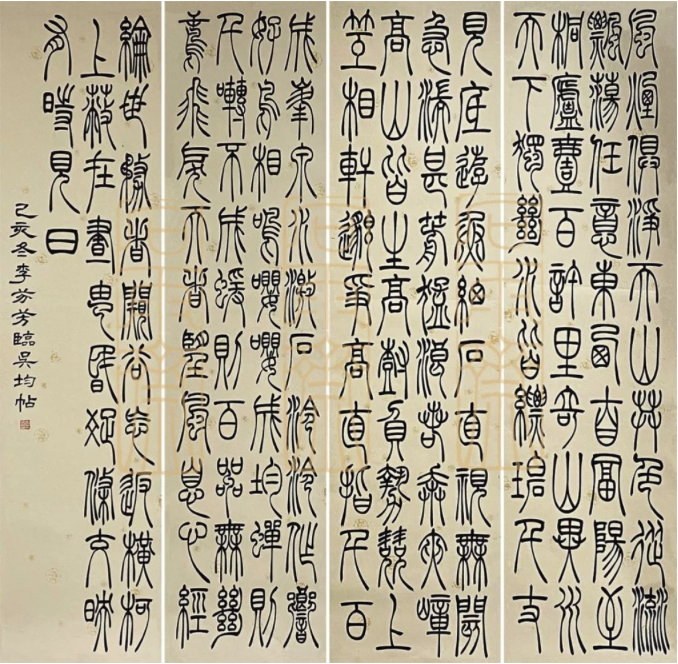 風煙俱淨天山共色從流
飄蕩任意東西自富陽至
桐廬壹百許里奇山異水
天下獨絕水皆縹碧千丈
見底游魚細石直視無閡
急湍甚箭猛浪若奔夾嶂
高山皆生高樹負勢競上
互相軒邈爭高直指千百
成峯泉水激石泠泠作響
好鳥相鳴嚶嚶成均蟬則
千囀不成蝯則百嘂無絕
鳶飛戾天者望風息心經
綸世務者闚谷忘返橫柯
上蔽在晝猶昏疏條交映
有時見日
己亥冬李芬芳臨吳均帖